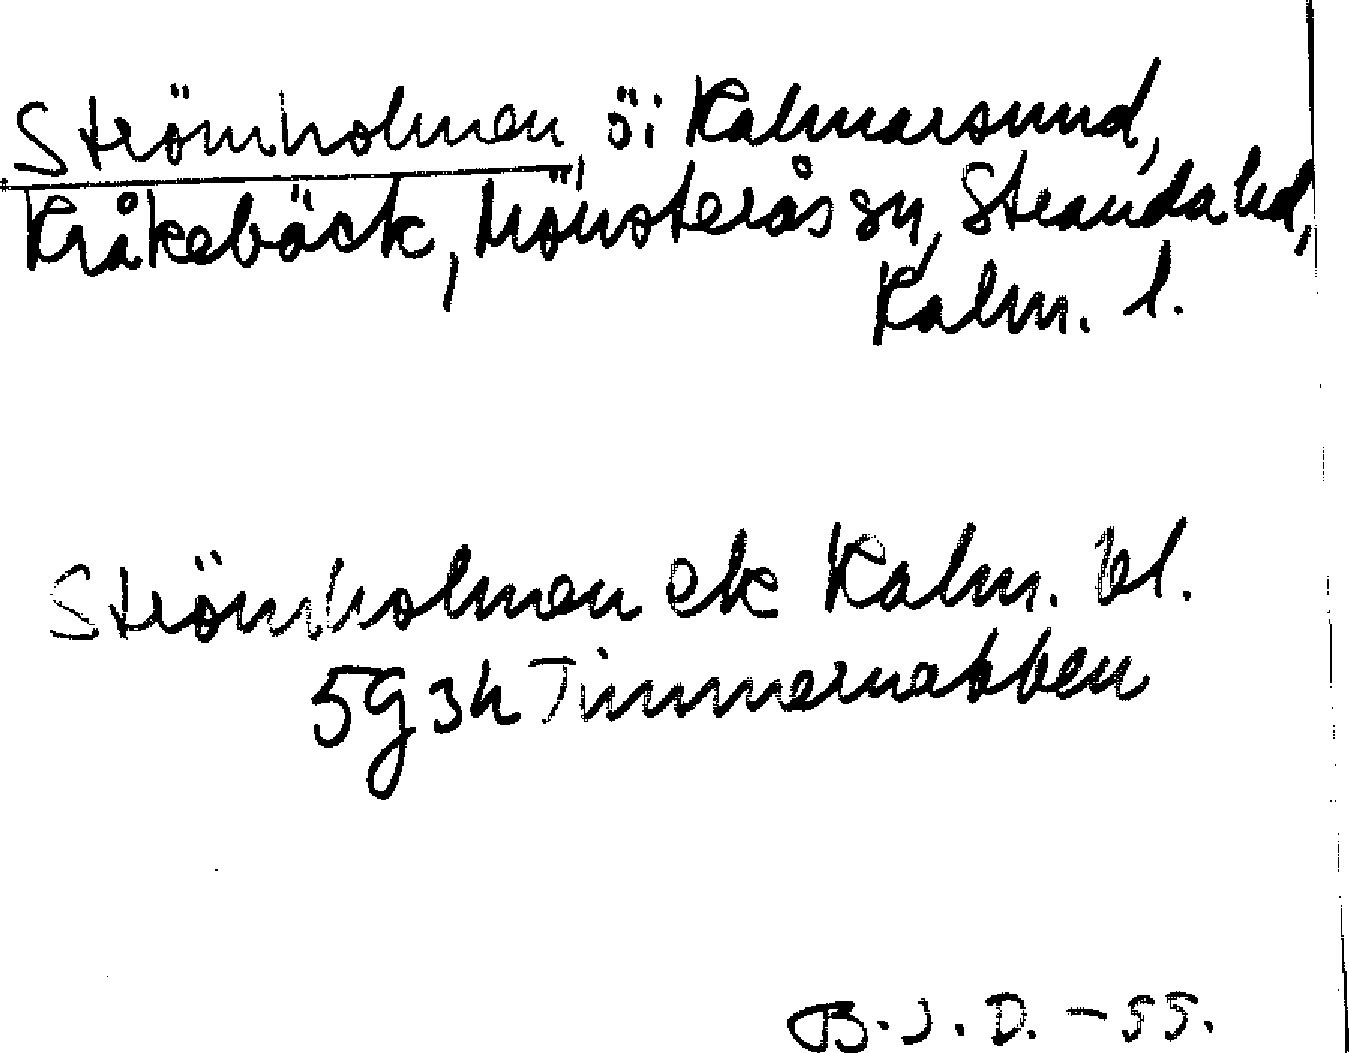 Strömholmen, ö i Kalmarsund,
Kråkebäck, Mönsterås sn, Stranda hd,
Kalm. l.
Strömholmen ek Kalm. bl.
5g3h Timmernabben
B.J.D. - 55.